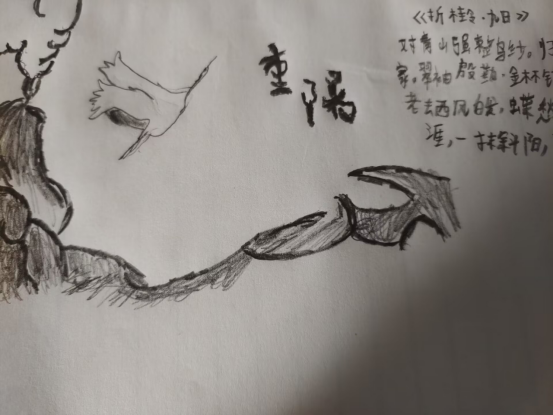 重隔
《折桂令·九日》
对青山强整乌纱。归
家。翠袖殷勤.金杯
老去西风白发,蝶愁
涯,一抹斜阳,